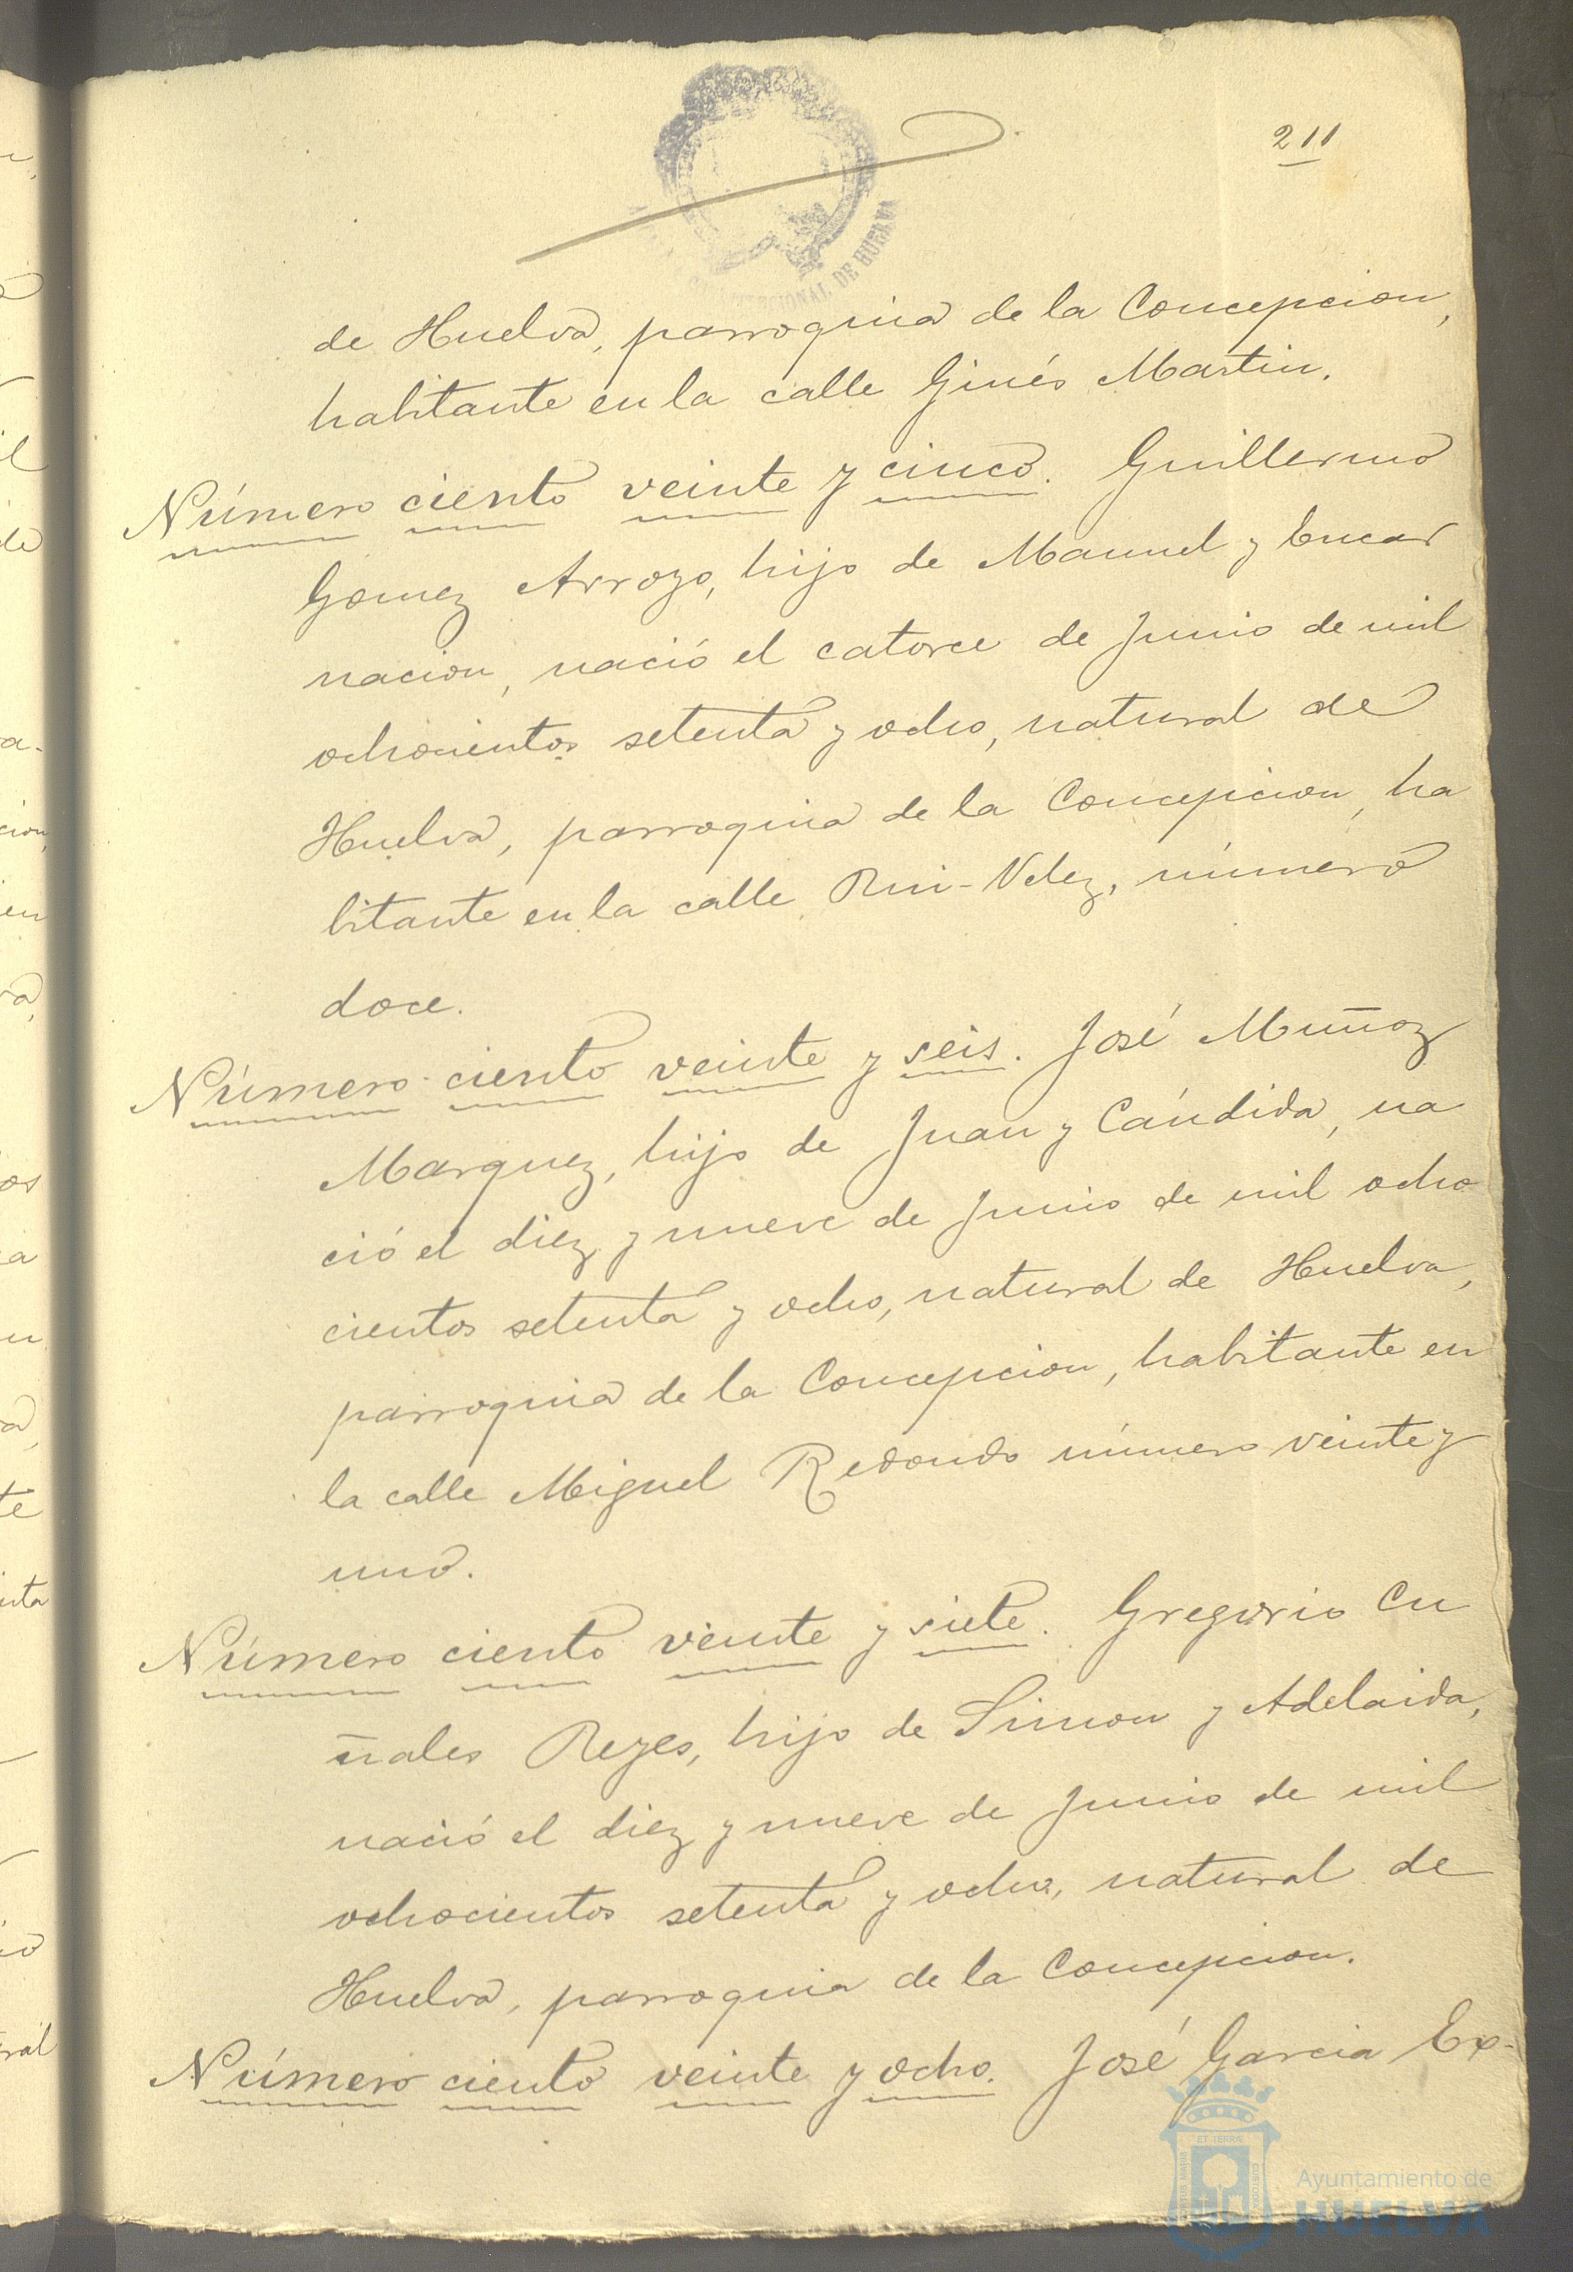 211
CONSTITUCIONAL DE HUELVA
de Huelva, parroquia de la Concepcion,
habitante en la calle Ginés Martin.
Número ciento veinte y cinco. Guillermo
Gomez Arroyo, hijo de Manuel y Encar
nacion, nació el catorce de Junio de mil
ochocientos setenta y ocho, natural de
Huelva, parroquia de la Concepcion, ha
bitante en la calle Rui-Velez, número
doce.
Número ciento veinte y seis. José Muñoz
Marquez, hijo de Juan y Cándida, na
ció el diez y nueve de Junio de mil ocho
cientos setenta y ocho, natural de Huelva,
parroquia de la Concepcion, habitante en
la calle Miguel Redondo número veinte y
uno.
Número ciento veinte y siete. Gregorio Cu
ñales Reyes, hijo de Simon y Adelaida,
nació el diez y nueve de Junio de mil
ochocientos setenta y ocho, natural de
Huelva, parroquia de la Concepcion.
Número ciento veinte y ocho. José Garcia Ex-
Ayuntamiento de
HUELVA